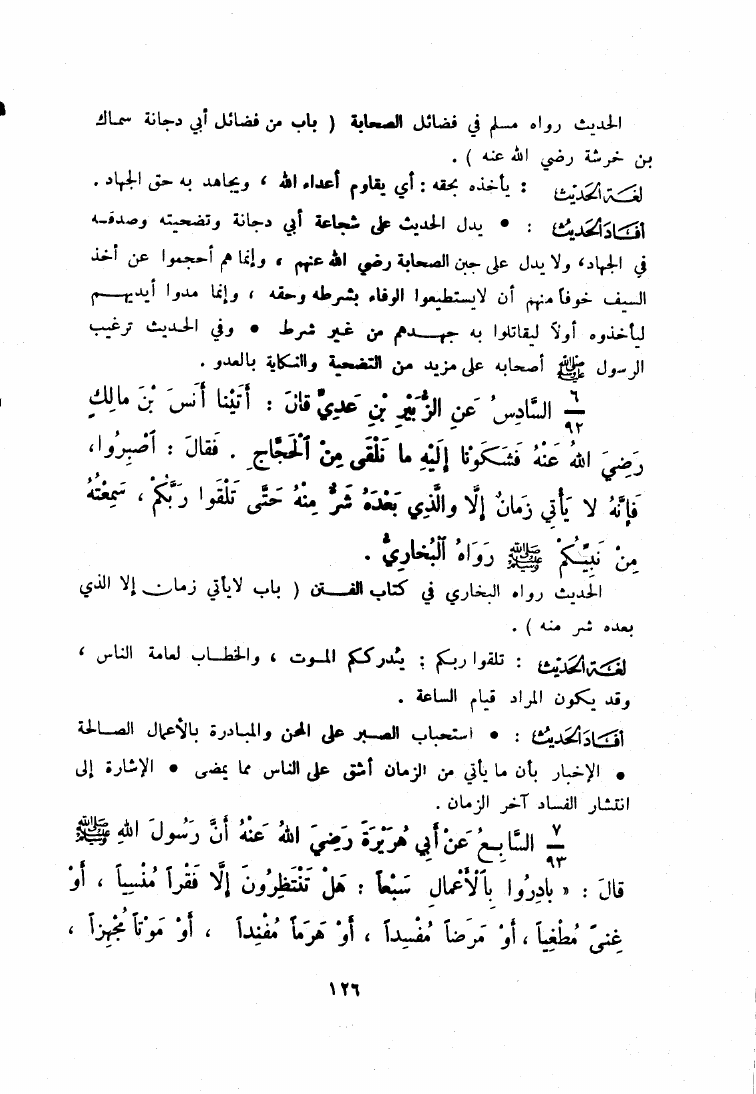 الحديث رواه مسلم في فضائل الصحابة ( باب من فضائل أبي دجانة سماك
بن خرشة رضي الله عنه ) .
لغة الحديث : يأخذه بحقه : أي يقاوم أعداء الله ، ويجاهد به حق الجهاد .
أفاد الحديث : • يدل الحديث على شجاعة أبي دجانة وتضحيته وصدقه
في الجهاد، ولا يدل على جبن الصحابة رضي الله عنهم ، وإنما هم أحجموا عن أخذ
السيف خوفاً منهم أن لايستطيعوا الوفاء بشرطه وحقه ، وإنما مدوا أيديهم
ليأخذوه أولاً ليقاتلوا به جهدهم من غير شرط • وفي الحديث ترغيب
الرسول ﷺ أصحابه على مزيد من التضحية والنكاية بالعدو .
٦/٩٢ — السَّادِسُ عَنِ الزُّبَيْرِ بْنِ عَدِيٍّ قَالَ : أَتَيْنا أَنَسَ بْنَ مالِكٍ
رَضِيَ اللهُ عَنْهُ فَشَكَوْنا إِلَيْهِ ما نَلْقَى مِنْ ٱلْحَجَّاجِ . فَقالَ : ٱصْبِرُوا،
فَإِنَّهُ لا يَأْتِي زَمانٌ إِلَّا والَّذِي بَعْدَهُ شَرٌّ مِنْهُ حَتَّى تَلْقَوا رَبَّكُمْ ، سَمِعْتُهُ
مِنْ نَبِيِّكُمْ ﷺ رَوَاهُ ٱلْبُخارِيُّ .
الحديث رواه البخاري في كتاب الفتن ( باب لايأتي زمان إلا الذي
بعده شر منه ) .
لغة الحديث : تلقوا ربكم : يُدرككم الموت ، والخطاب لعامة الناس ،
وقد يكون المراد قيام الساعة .
أفاد الحديث : • استحباب الصبر على المحن والمبادرة بالأعمال الصالحة
• الإخبار بأن ما يأتي من الزمان أشق على الناس مما يمضى • الإشارة إلى
انتشار الفساد آخر الزمان .
٧/٩٣ — السَّابِعُ عَنْ أَبِي هُرَيْرَةَ رَضِيَ اللهُ عَنْهُ أَنَّ رَسُولَ اللهِ ﷺ
قالَ : « بادِرُوا بِٱلْأَعْمالِ سَبْعاً : هَلْ تَنْتَظِرُونَ إِلَّا فَقْراً مُنْسِياً ، أَوْ
غِنىً مُطْغِياً ، أَوْ مَرَضاً مُفْسِداً ، أَوْ هَرَماً مُفْنِداً ، أَوْ مَوْتاً مُجْهِزاً ،
١٢٦